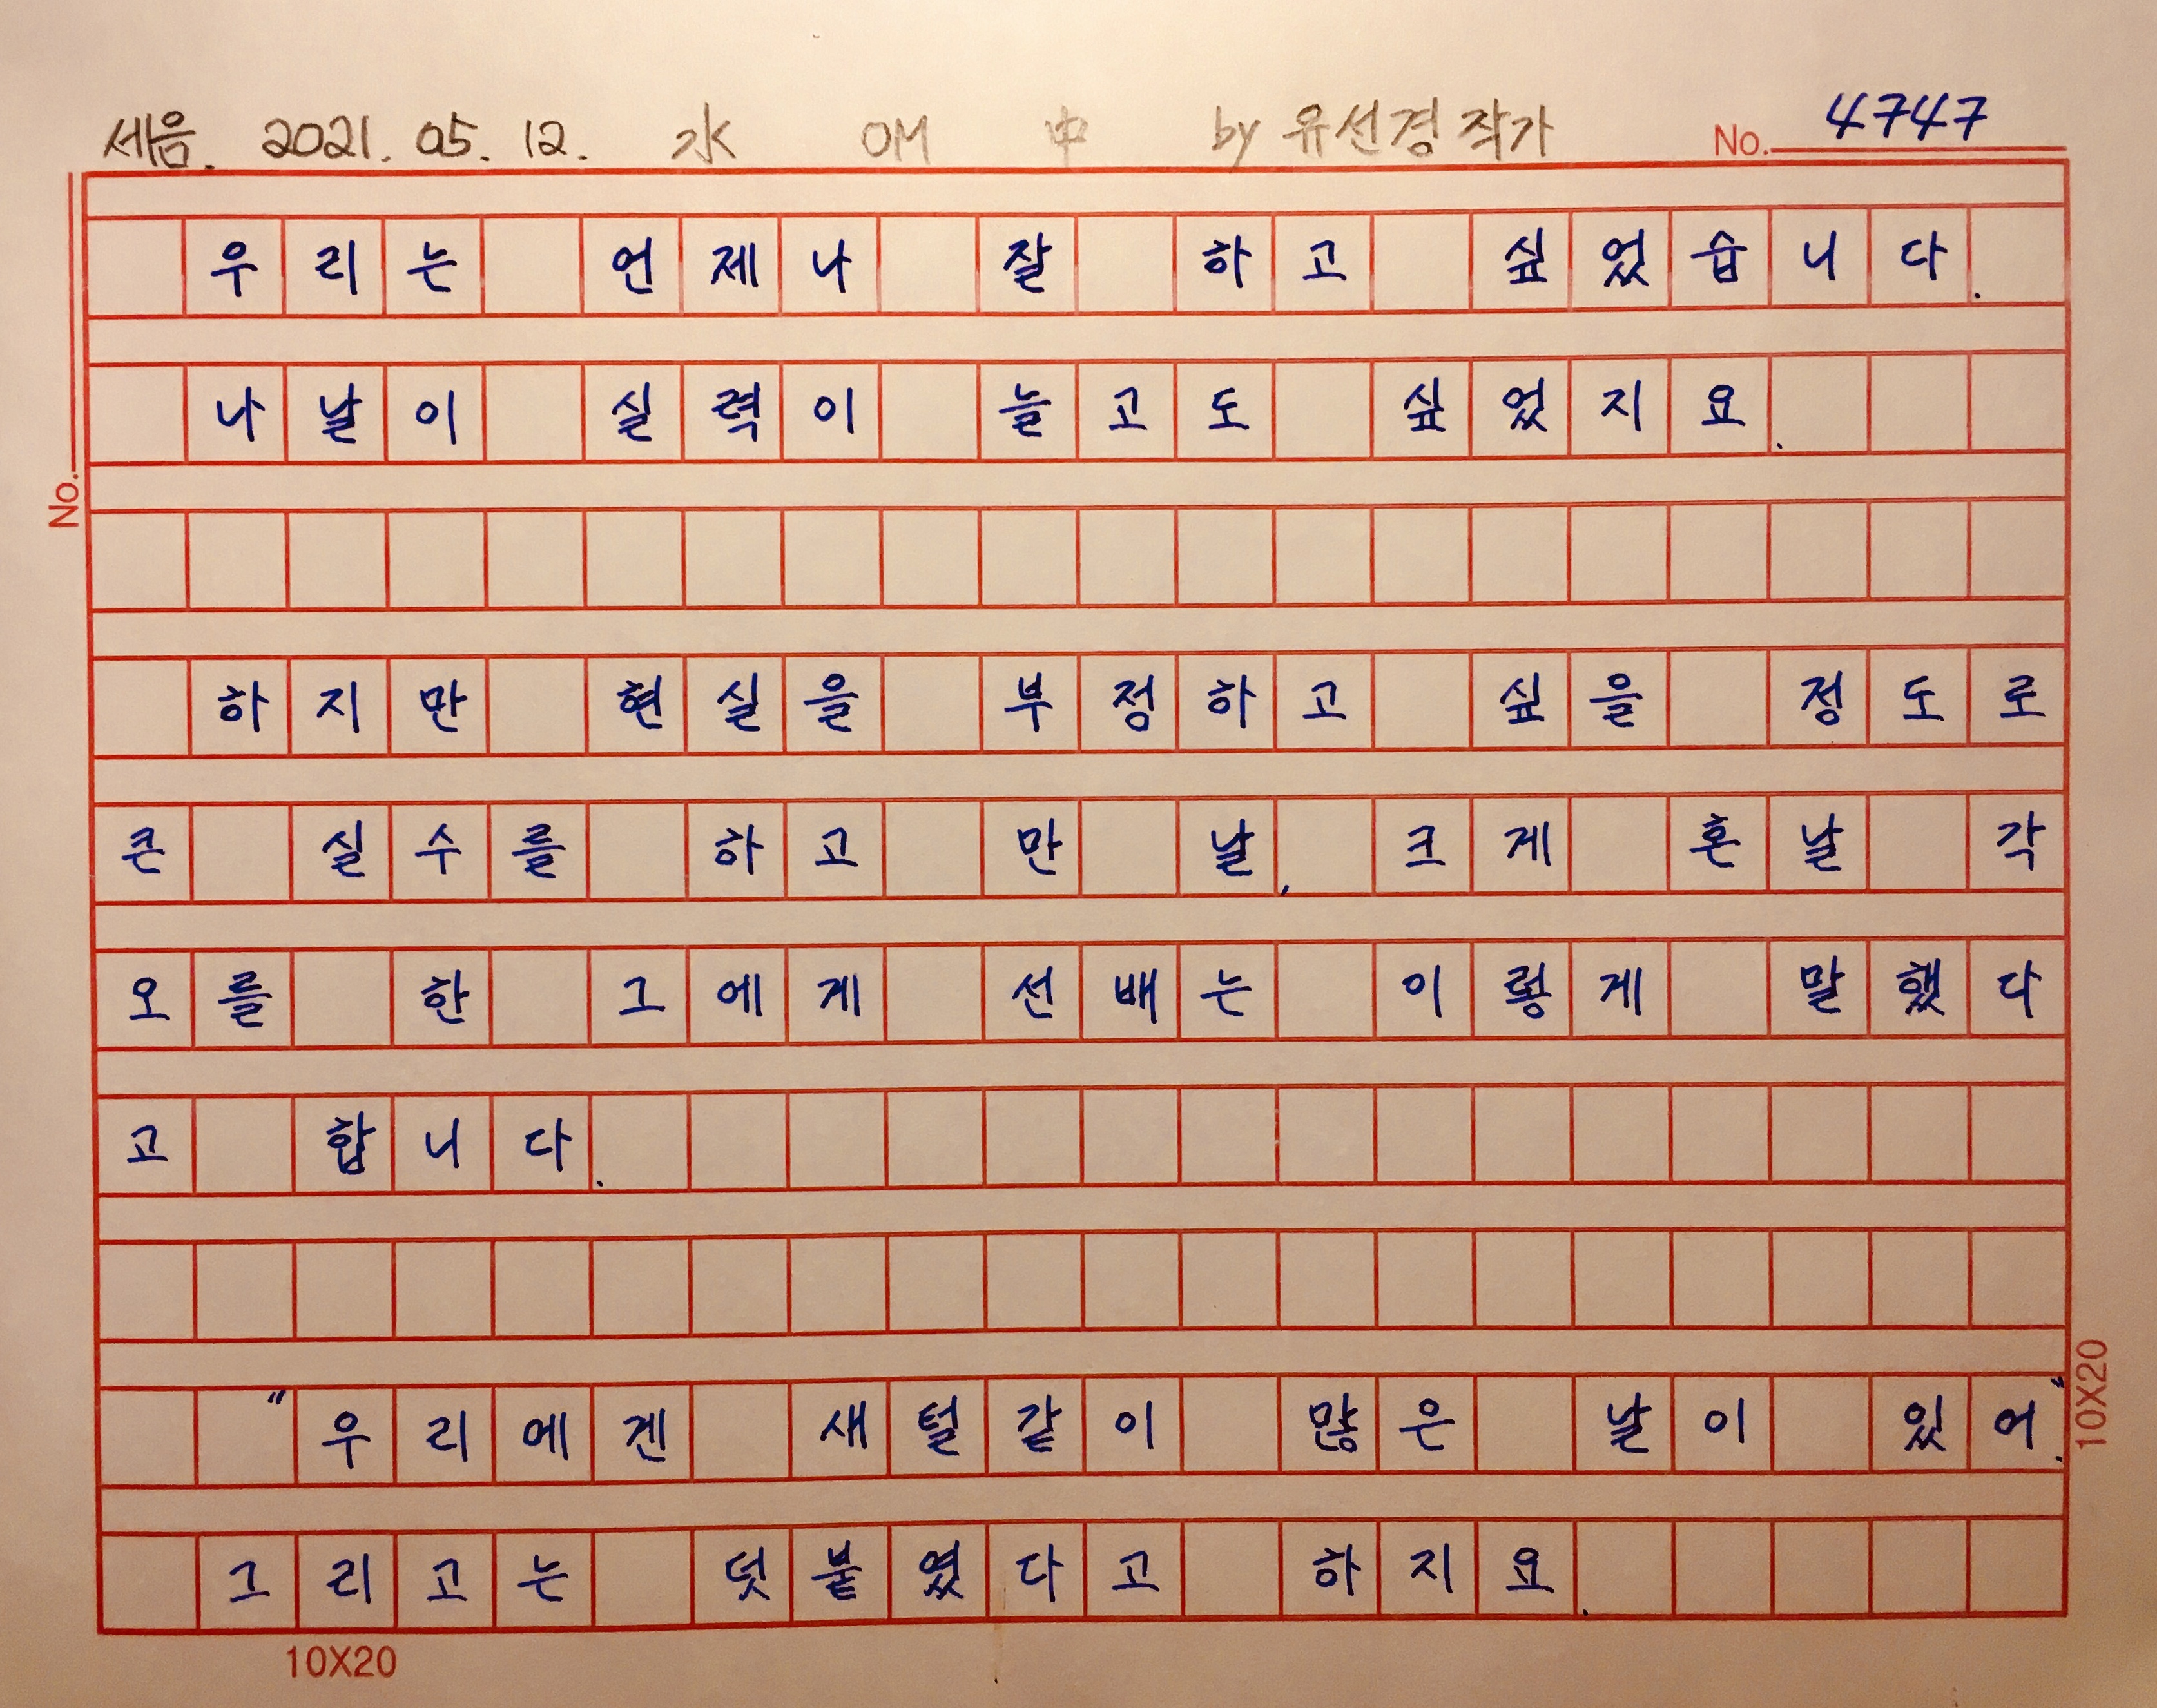 세음. 2021. 05. 12. 水 OM 中 by 유선경 작가 No. 4747
우리는 언제나 잘 하고 싶었습니다.
나날이 실력이 늘고도 싶었지요.
No.
하지만 현실을 부정하고 싶을 정도로
큰 실수를 하고 만 날, 크게 혼날 각
오를 한 그에게 선배는 이렇게 말했다
고 합니다.
"우리에겐 새털같이 많은 날이 있어."
그리고는 덧붙였다고 하지요.
10X20
10X20